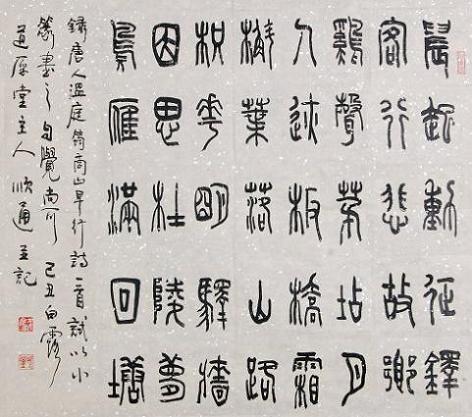 晨起動征鐸
客行悲故鄉
鷄聲茅坫月
人迹板橋霜
槲葉落山路
枳花明驛牆
因思杜陵夢
鳧雁滿回塘
錄唐人溫庭筠商山早行詩一首試以小
篆書之自覺尚可 己丑白露
道原堂主人順通並記